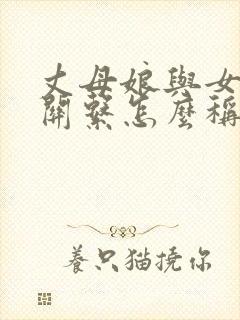 丈母娘與女
關繫怎麼稱
養只猫撓你